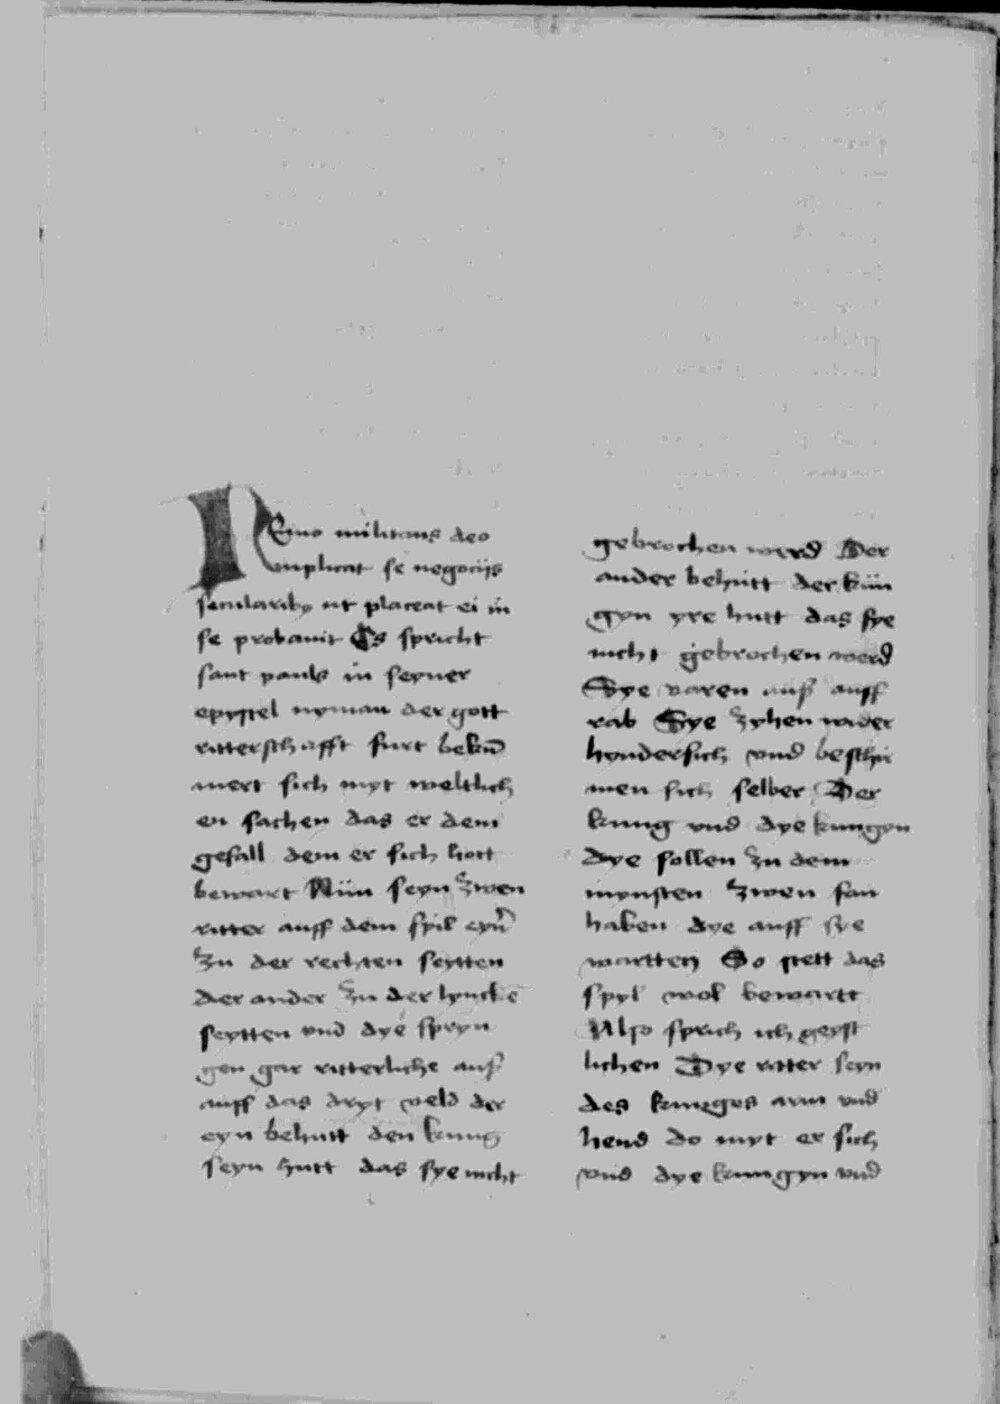 NEmo militans deo
implicat se negocijs
seculariby ut placeat ei in
se probauit Es spricht
sant pauls in seyner
epystel nyman der gott
ritterschafft furt bekū
mert sich myt weltlich
en sachen das er dem
gefall dem er sich hott
bewart Nün seyn zwen
ritter auff dem spil eyn̄
zu der rechten seytten
der ander zu der lyncke
seytten vnd dye spryn
gen gar ritterliche auß
auff das dryt veld der
eyn behutt den kung
seyn hutt das sye nicht
gebrochen werd Der
ander behutt der kün
gyn yre hutt das sye
nicht gebrochen werd
Sye varen auß auff
rab Sye zyhen wider
hyndersich vnd beschir
men sich selber Der
kung vnd dye kungyn
dye sollen zu dem
mynsten zwen fan
haben dye auff sye
wartten So stett das
spyl wol bewartt
Also sprich ich geyst
lichen Dye ritter seyn
des kunges arm vnd
hend do myt er sich
vnd dye kungyn vnd